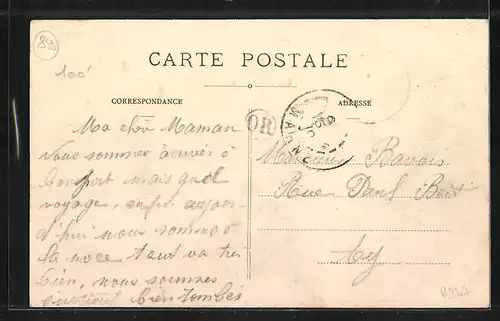 89
100
CARTE POSTALE
CORRESPONDANCE
ADRESSE
OR
Ma chèr Maman
Nous sommes arrivés à
bon port mais quel
voyage, enfin aujour-
d'hui nous sommes à
la noce tout va tres
bien, nous sommes
bien tombés
Monsieur Bavais
Rue Paul Bert
Ay